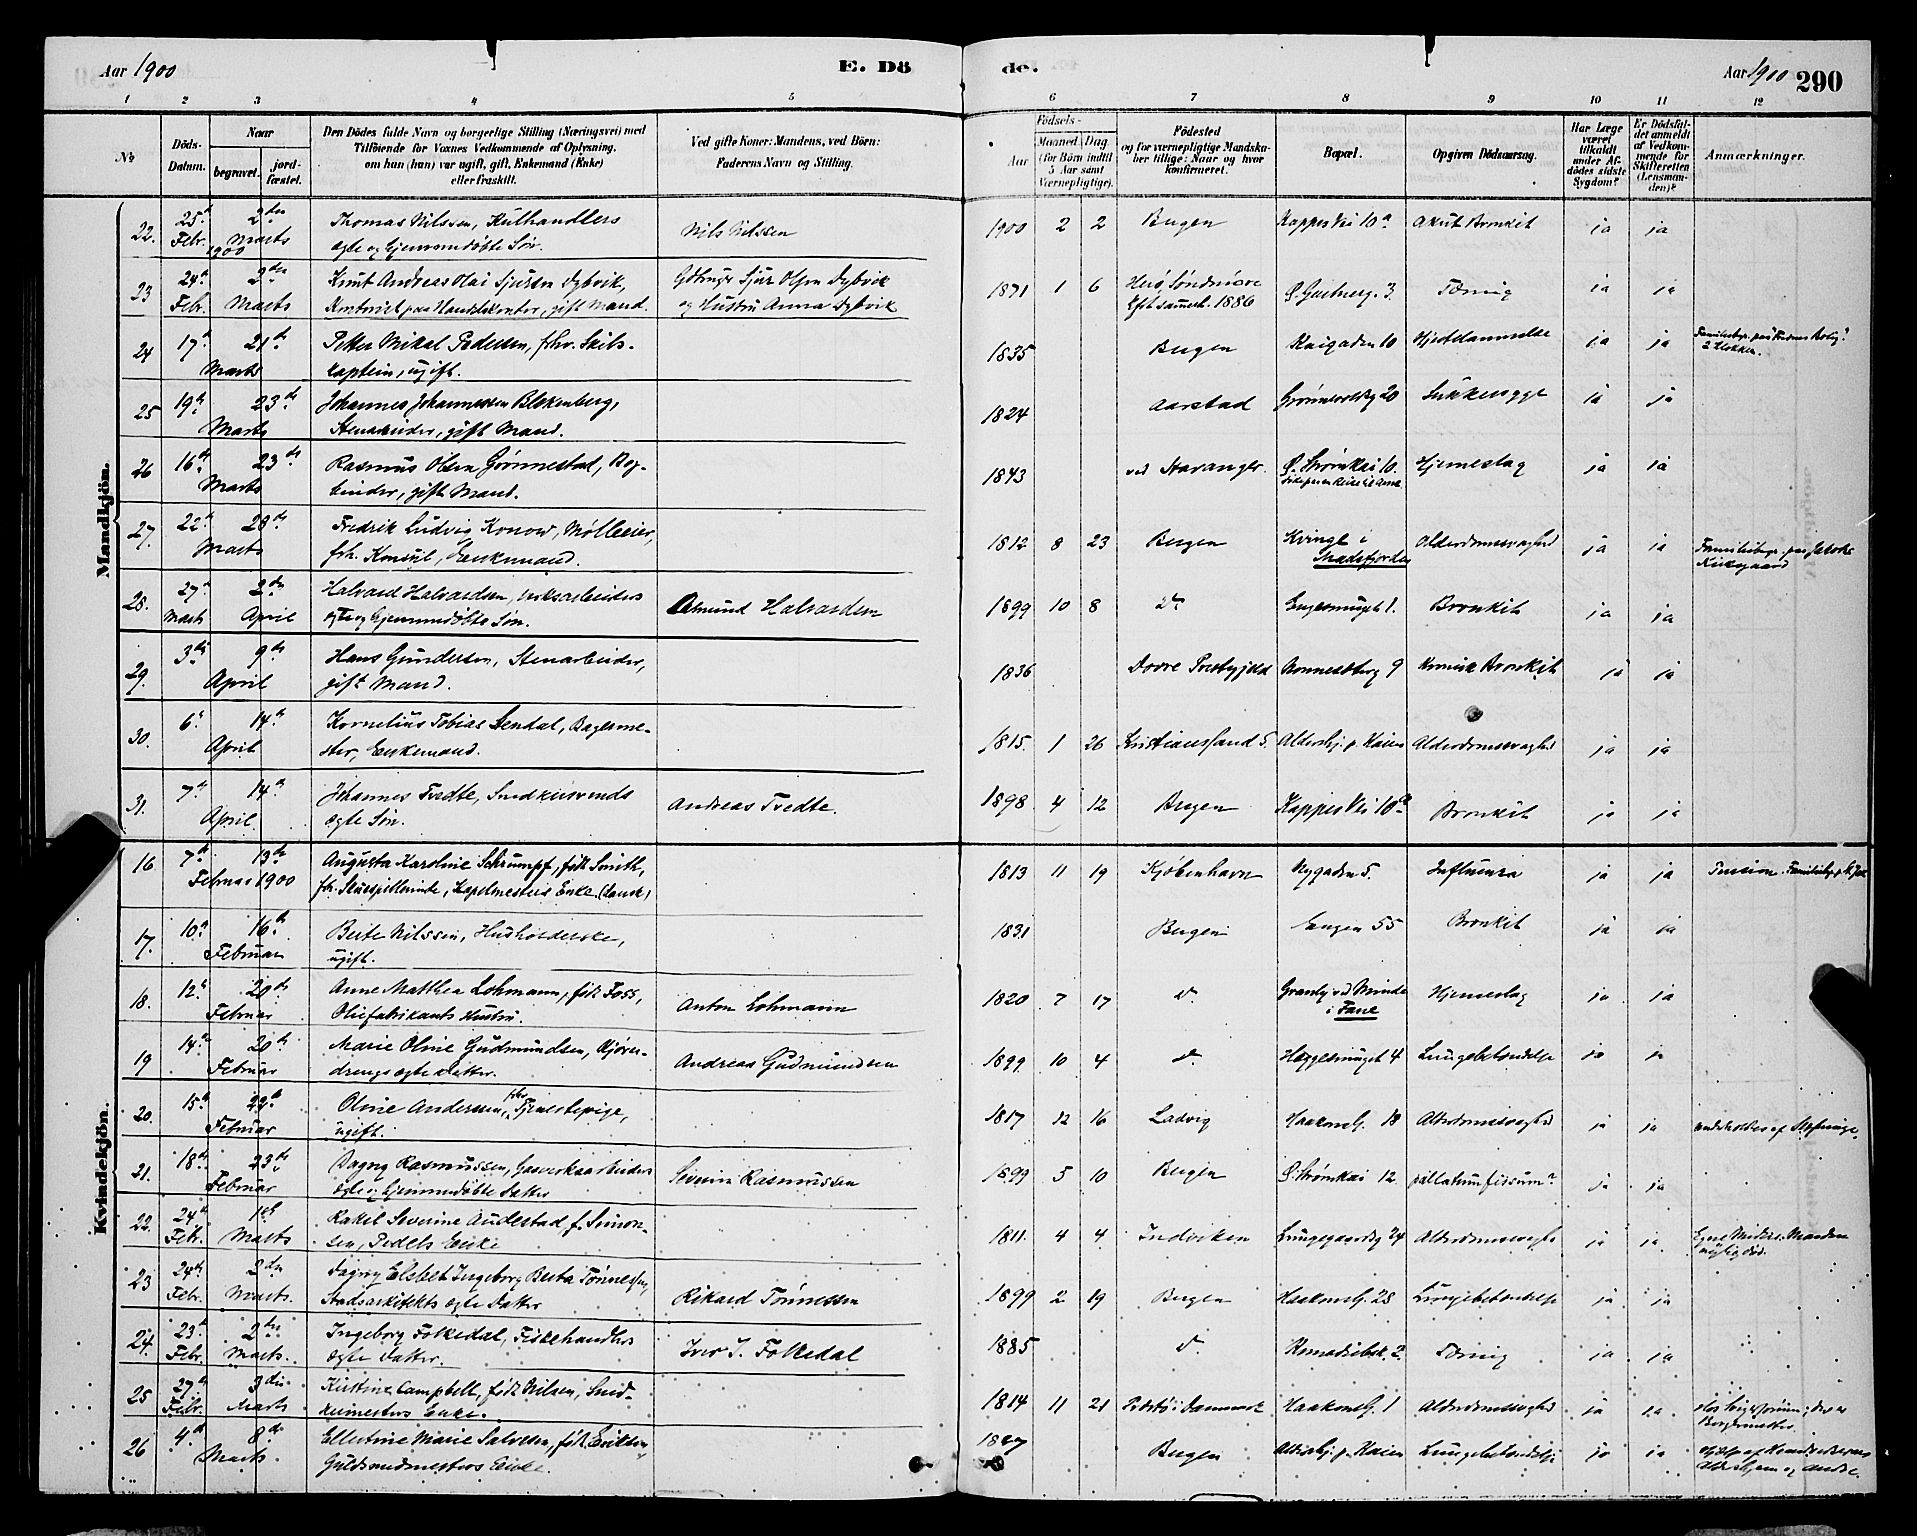 Aar 1900
E. Dö
de.
Aar 1900
290
1 2 3 4 5 6 7 8 9 10 11 12
No
Döds-Datum.
Naar
begravet.
jord-fæstet.
Den Dödes fulde Navn og borgerlige Stilling (Næringsvei) med
Tilföiende for Voxnes Vedkommende af Oplysning,
om han (hun) var ugift, gift, Enkemand (Enke)
eller fraskilt.
Ved gifte Koner: Mandens, ved Börn:
Faderens Navn og Stilling.
Födsels-
Aar
Maaned Dag
(for Börn indtil
5 Aar samt
Værnepligtige).
Födested
og for værnepligtige Mandska-
ber tillige: Naar og hvor
konfirmeret.
Bopæl.
Opgiven Dödsaarsag.
Har Læge
været
tilkaldt
under Af-
dödes sidste
Sygdom?
Er Dödsfal-
det anmeldt
af Vedkom-
mende for
Skifteretten
(Lensman-
den)?
Anmærkninger.
Mandkjön.
22. 25. Febr. 2den Marts 1900 Thomas Nilssen, Kulhandlers
ægte og hjemmedøbte Søn. Nils Nilssen 1900 2 2 Bergen Kappes Vei 10a Akut Bronkit ja ja
23 24 Febr. 2den Marts Knut Andreas Olai Sjursen Dybvik,
Kontorist paa Handelskontor, gift Mand. Sjur Olsen Dybvik
og Hustru Anna Dybvik 1871 1 6 Herø Søndmøre
1886 3. Tæring ja ja
24 17 21 Marts Petter Mikal Pedersen, fhv. Skibs-
kaptein, ugift. 1835 Bergen Kaigaden 10 Hjertelammelse ja ja
25 19 23 Marts Johannes Johannessen Blekenberg,
Stenarbeider, gift Mand. 1824 Aarstad 20 Sukkersyge ja ja
26 16 23 Marts Rasmus Olsen Grønnestad, Bog-
binder, gift Mand. 1843 ved Stavanger. Ø. Strømkai 10. Hjerneslag ja ja
27. 22 28 Marts Fredrik Ludvig Konow, Mølleeier,
frh. Konsul, Enkemand. 1812 8 23 Bergen Kvinge i
Alderdomssvaghed ja ja Familiebegr. paa Jakobs
Kirkegaard
28. 27 Marts 2den April Halvard Halvardsen, Verksarbeiders
ægte og hjemmedøbte Søn. Amund Halvardsen 1899 10 8 Do Engesmuget 1. Bronkit ja ja
29. 3die 9de April Hans Gundersen, Stenarbeider,
gift Mand. 1836 Dovre Præstegjeld 9 Kronisk Bronkit ja ja
30. 6 14 April Kornelius Tobias Sendal, Bagerme-
ster, Enkemand. 1815. 1 26 Kristianssand S. Aldershj. p. Kaien Alderdomssvaghed ja ja
31. 7 14 April Johannes Tvedte, Snedkersvends
ægte Søn. Andreas Tvedte. 1898 4 12 Bergen Kappes Vei 10a Bronkit ja ja
Kvindekjön.
16. 7 13 Februar 1900 Augusta Karoline Schrumpf, født Smith,
fh. Skuespillerinde, Kapelmesters Enke. (dansk) 1813 11 19 Kjøbenhavn Nygaden 5. Influensa ja ja Pension.
17. 10 16 Februar Berte Nilssen, Husholderske,
ugift. 1831 Bergen Engen 55 Bronkit ja ja
18. 12 20 Februar Anne Matthea Lohmann, født Foss,
Oliefabrikants Hustru. Anton Lohmann 1820 7 17 d. ved Minde
i Fane Hjerneslag ja ja
19 14 20 Februar Marie Oline Gudmundsen, Kjøre-
drengs ægte Datter. Andreas Gudmundsen 1899 10 4 d. Heggesmuget 4 Lungebetændelse ja ja
20. 15 22 Februar Oline Andersen, fhv Tjenestepige,
ugift. 1817 12 16 Ladvig Haakonsg. 18 Alderdomssvaghed ja ja
21. 18 23 Februar Dagny Rasmussen, Gasverksarbeiders
ægte og hjemmedøbte Datter Severin Rasmussen 1899 5 10 Bergen Ø. Strømkai 12 pallatum fissum? ja ja
22. 24 Febr. 1ste Marts Rakel Severine Audestad, f. Simon-
sen, Pedels Enke 1811. 4 4 Indviken Lungegaardsg 24 Alderdomssvaghed ja ja Egne Midler. Manden
nylig død.
23 24 Febr. 2den Marts. Dagny Elsbet Ingeborg Berta Tønnessen,
Stadsarkitekts ægte Datter Rikard Tønnessen 1899 2 19 Bergen Haakonsg. 28 Lungebetændelse ja ja
24. 23 Febr. 2den Marts. Ingeborg Folkedal, Fiskehandlers
ægte Datter. Iver I. Folkedal 1885 d. 2. Tæring ja ja
25 27 Febr. 3die Marts Kirstine Campbell, født Nilsen, Sned-
kermesters Enke. 1814 11 21 i Danmark Haakonsg. 1 Alderdomssvaghed ja ja
26 4 8de Marts Ellertine Marie Salvesen, født Eriksen
Guldsmedmesters Enke. Bergen Aldershj. p. Kaien Lungebetændelse ja ja